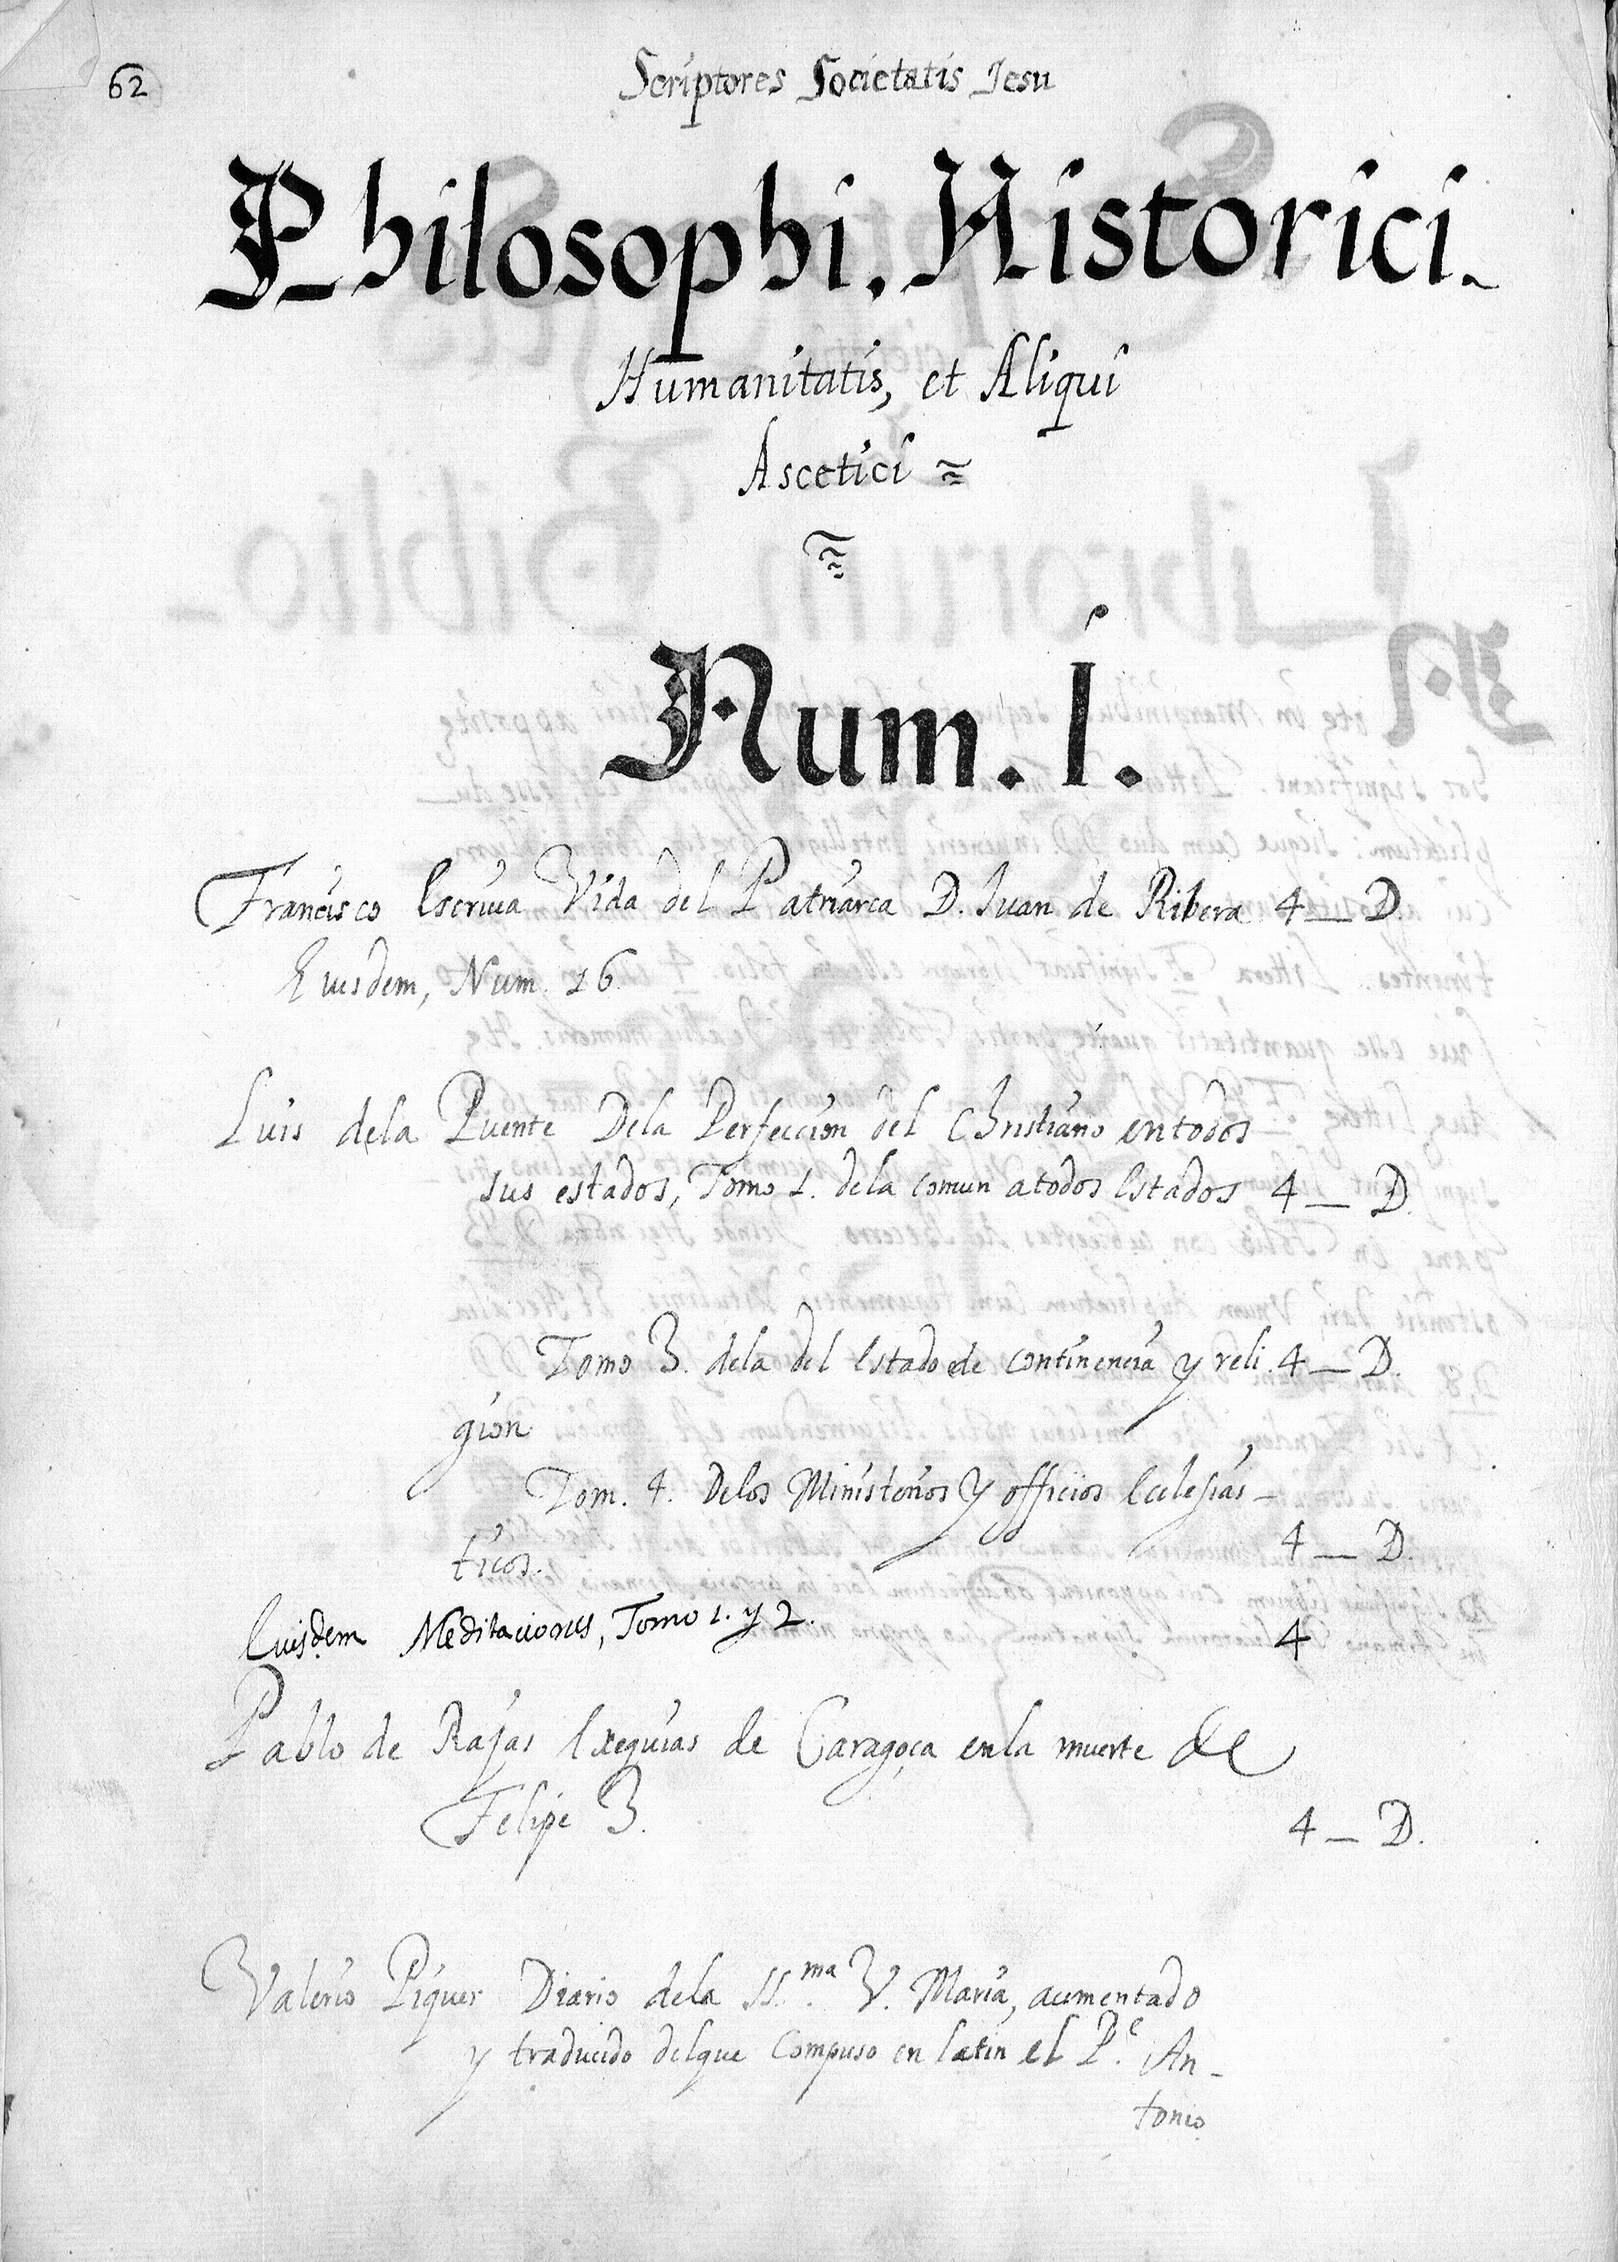 62
Scriptores Societatis Jesu
Philosophi. Historici.
Humanitatis, et Aliqui
Ascetici
Num. 1.
Francisco Escriva Vida del Patriarca D. Juan de Ribera 4 — D.
Eiusdem, Num. 16.
Luis dela Puente Dela Perfeccion del Christiano entodos
sus estados, Tomo 1. dela comun atodos Estados 4 — D.
Tomo 3. dela del Estado de continencia y reli 4 — D.
gion.
Tom. 4. Delos Ministerios y officios Eclesias-
ticos. 4 — D.
Eiusdem Meditaciones, Tomo 1. y 2. 4
Pablo de Rajas Exequias de Caragoça enla muerte de
Felipe 3. 4 — D.
Valerio Piquer Diario dela SS.ma V. Maria, aumentado
y traducido delque compuso en latin el P.e An-
tonio